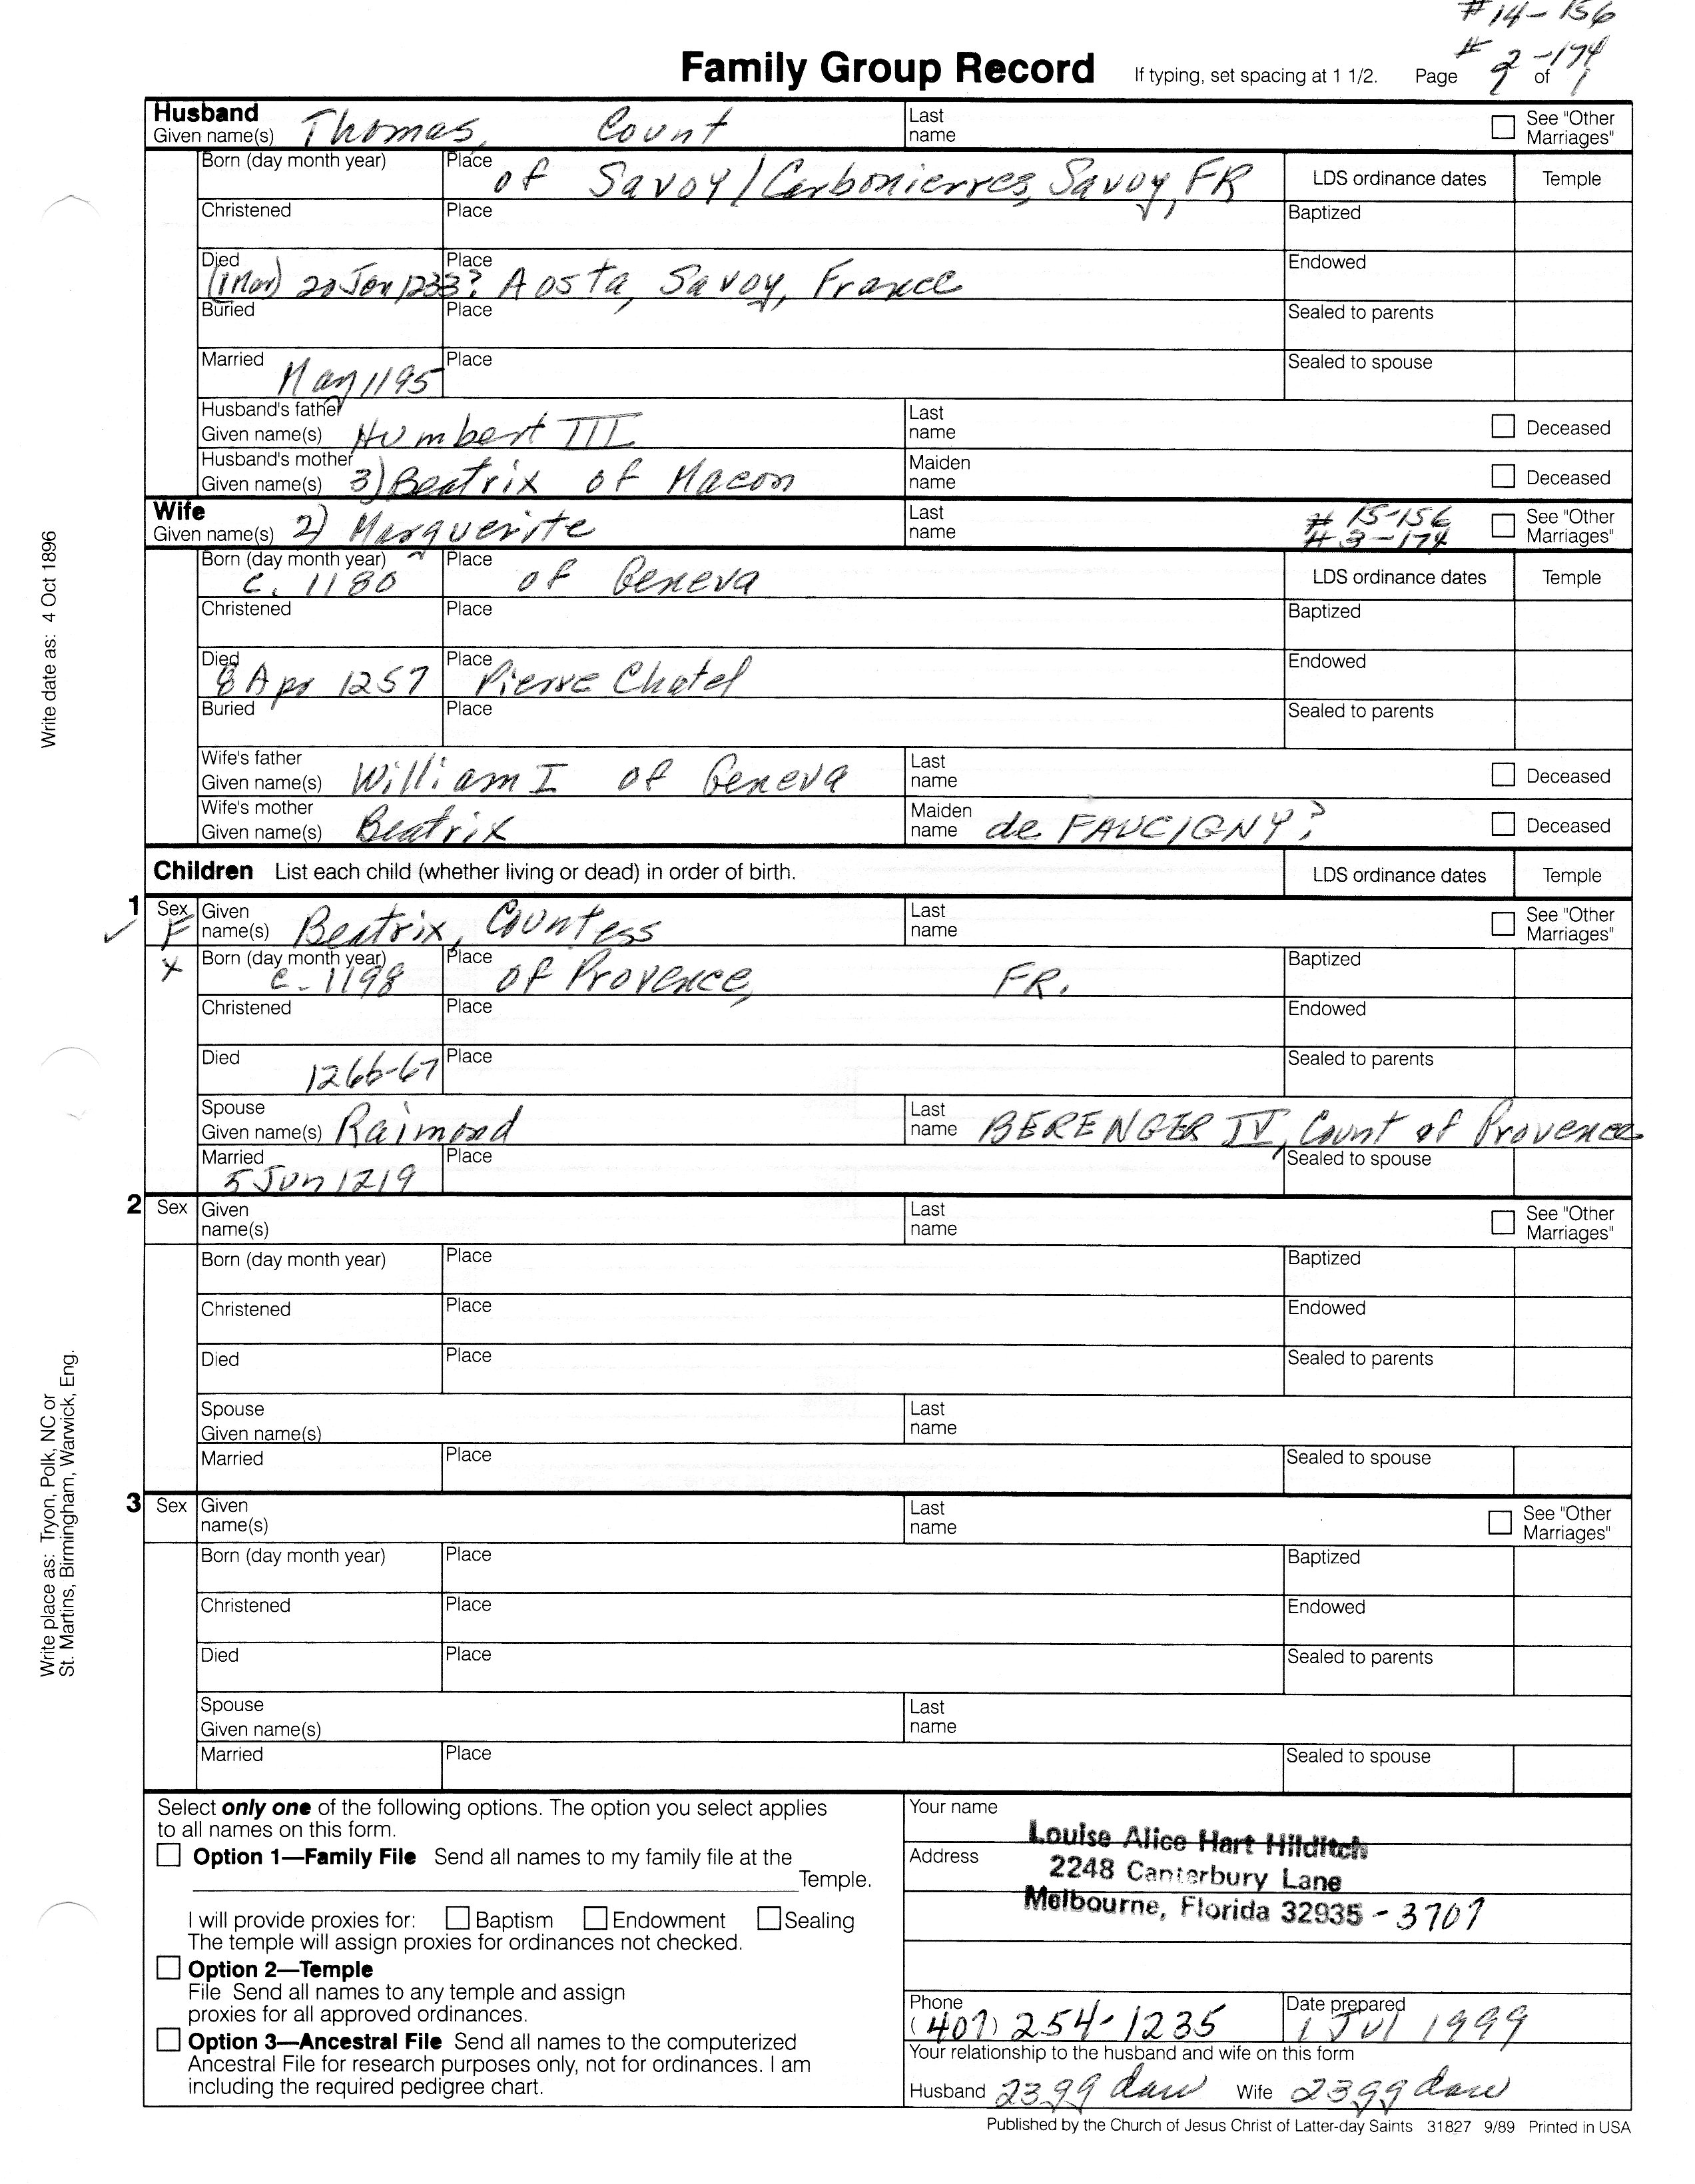 #14-156
# 2-174
Family Group Record If typing, set spacing at 1 1/2. Page 1 of 1
Husband
Given name(s) Thomas, Count Last name See "Other Marriages"
Born (day month year) Place of Savoy/Carbonierres, Savoy, FR LDS ordinance dates Temple
Christened Place Baptized
Died (1 Mar) 20 Jan 1233? Place Aosta, Savoy, France Endowed
Buried Place Sealed to parents
Married May 1195 Place Sealed to spouse
Husband's father
Given name(s) Humbert III Last name Deceased
Husband's mother
Given name(s) 3) Beatrix of Macon Maiden name Deceased
Wife
Given name(s) 2) Marguerite Last name # 15-156 # 3-174 See "Other Marriages"
Born (day month year) c. 1180 Place of Geneva LDS ordinance dates Temple
Christened Place Baptized
Died 8 Apr 1257 Place Pierre Chatel Endowed
Buried Place Sealed to parents
Wife's father
Given name(s) William I of Geneva Last name Deceased
Wife's mother
Given name(s) Beatrix Maiden name de FAUCIGNY? Deceased
Children List each child (whether living or dead) in order of birth. LDS ordinance dates Temple
1 Sex F Given name(s) Beatrix, Countess Last name See "Other Marriages"
x Born (day month year) c. 1198 Place of Provence, FR. Baptized
Christened Place Endowed
Died 1266-67 Place Sealed to parents
Spouse
Given name(s) Raimond Last name BERENGER IV, Count of Provence
Married 5 Jun 1219 Place Sealed to spouse
2 Sex Given name(s) Last name See "Other Marriages"
Born (day month year) Place Baptized
Christened Place Endowed
Died Place Sealed to parents
Spouse
Given name(s) Last name
Married Place Sealed to spouse
3 Sex Given name(s) Last name See "Other Marriages"
Born (day month year) Place Baptized
Christened Place Endowed
Died Place Sealed to parents
Spouse
Given name(s) Last name
Married Place Sealed to spouse
Write date as: 4 Oct 1896
Write place as: Tryon, Polk, NC or
St. Martins, Birmingham, Warwick, Eng.
Select only one of the following options. The option you select applies
to all names on this form.
Option 1—Family File Send all names to my family file at the
Temple.
I will provide proxies for: Baptism Endowment Sealing
The temple will assign proxies for ordinances not checked.
Option 2—Temple
File Send all names to any temple and assign
proxies for all approved ordinances.
Option 3—Ancestral File Send all names to the computerized
Ancestral File for research purposes only, not for ordinances. I am
including the required pedigree chart.
Your name Louise Alice Hart Hilditch
Address 2248 Canterbury Lane
Melbourne, Florida 32935-3707
Phone (407) 254-1235 Date prepared 1 Jul 1999
Your relationship to the husband and wife on this form
Husband 23 gg dau Wife 23 gg dau
Published by the Church of Jesus Christ of Latter-day Saints 31827 9/89 Printed in USA